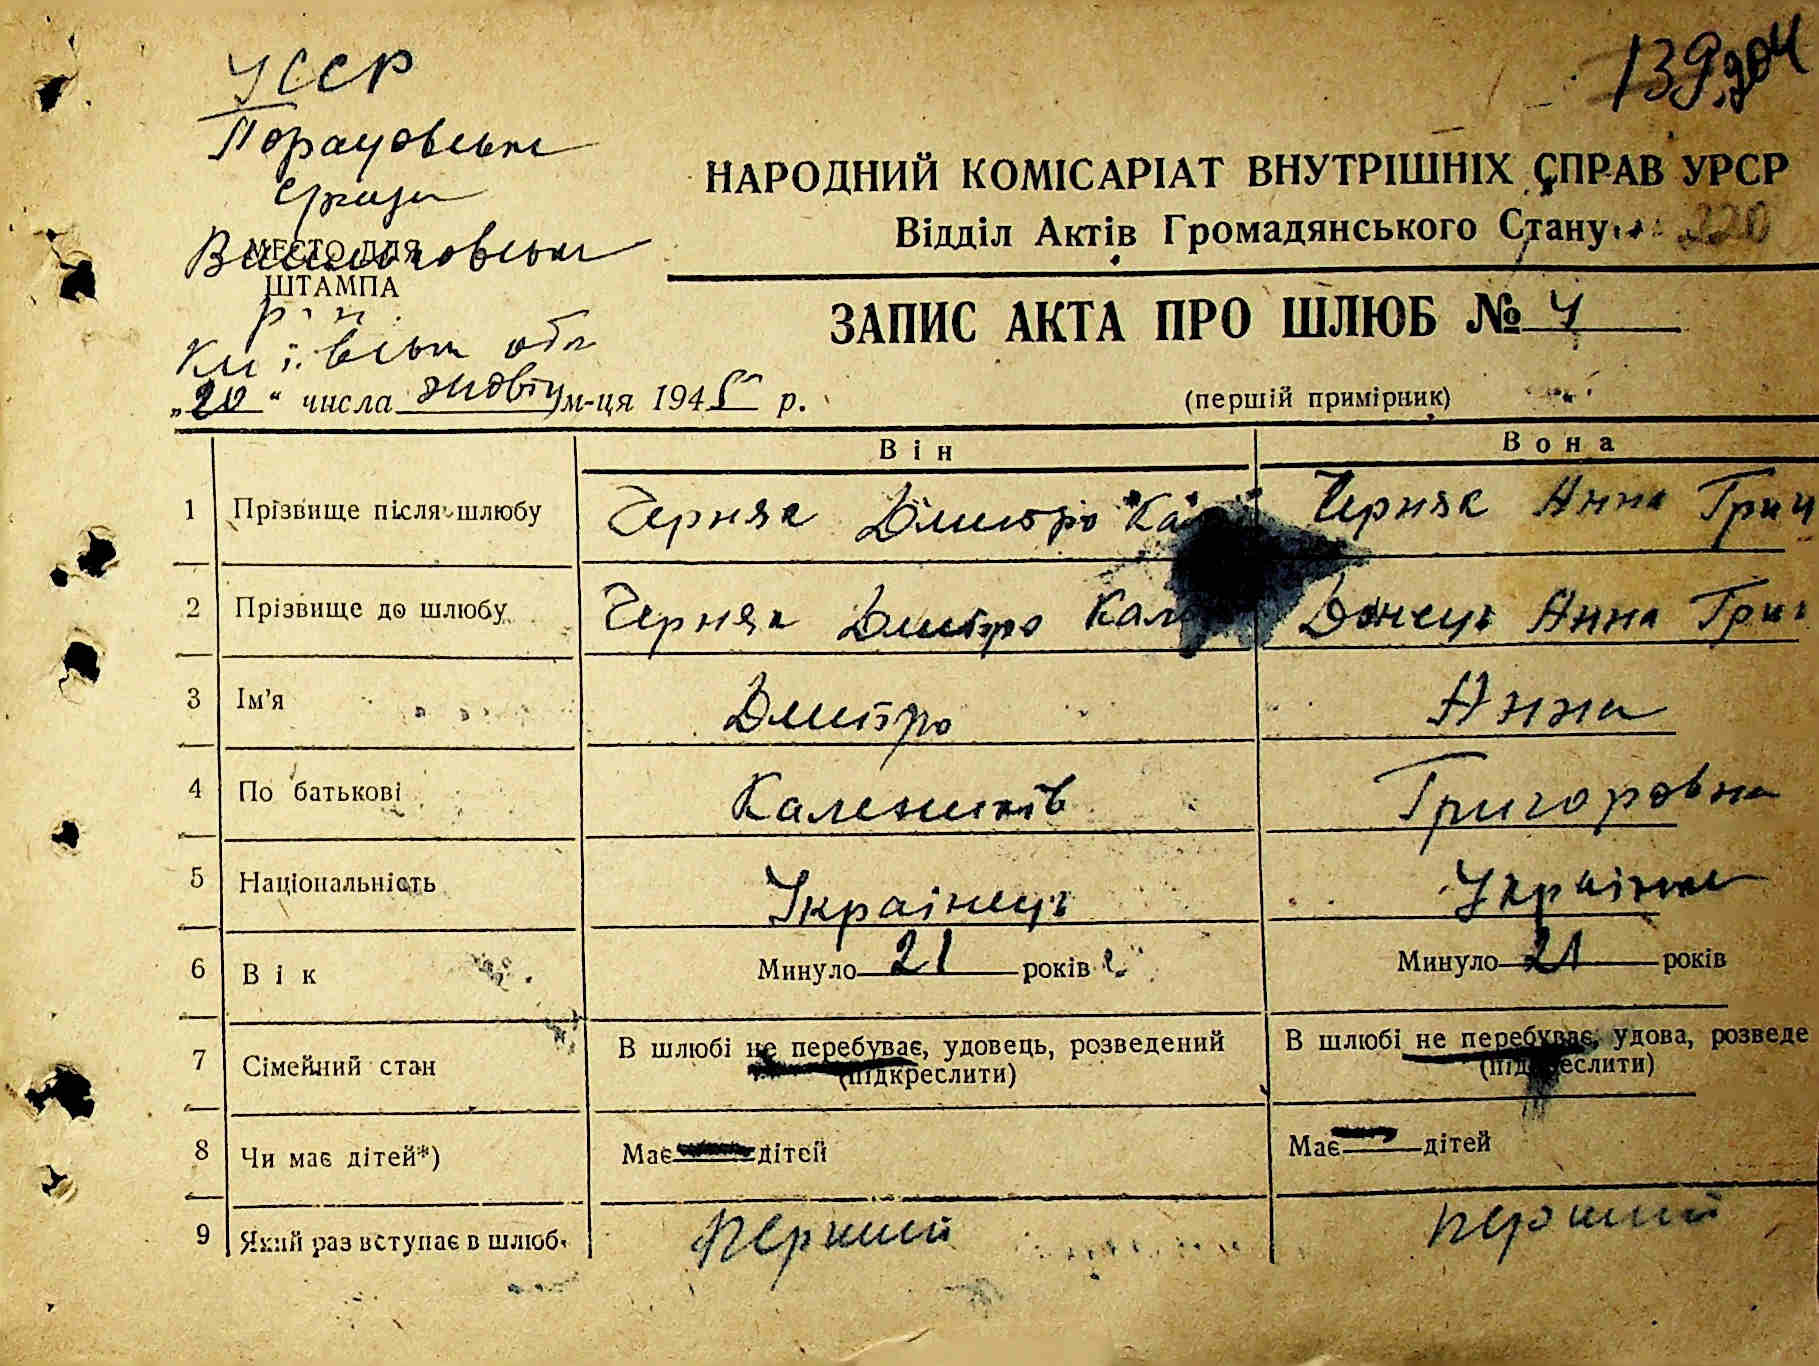 УССР
139 204
Порадовська
НАРОДНИЙ КОМІСАРІАТ ВНУТРІШНІХ СПРАВ УРСР
Сільрада
Відділ Актів Громадянського Стану
220
Васильковськ
МЕСТО ДЛЯ
ШТАМПА
р-н
ЗАПИС АКТА ПРО ШЛЮБ № 4
Київськ обл
„20“ числа жовтн м-ця 1945 р.
(першій примірник)
Він Вона
1 Прізвище після шлюбу Черняк Дмитро Ка Черняк Анна Григ
2 Прізвище до шлюбу Черняк Дмитро Кал Донець Анна Григ
3 Ім’я Дмитро Анна
4 По батькові Калеників Григоровна
5 Національність Українець Українка
6 Вік Минуло 21 років Минуло 21 років
7 Сімейний стан В шлюбі не перебуває, удовець, розведений (підкреслити) В шлюбі не перебуває, удова, розведе (підкреслити)
8 Чи має дітей*) Має — дітей Має — дітей
9 Який раз вступає в шлюб. Перший Перший